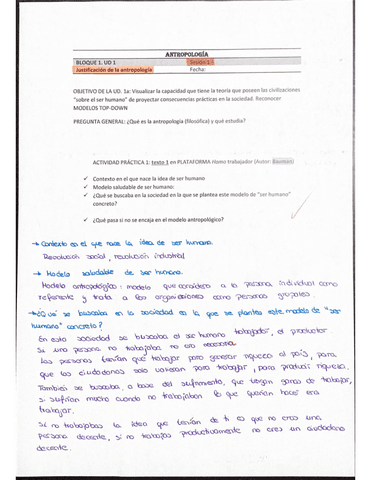 ANTROPOLOGÍA
BLOQUE 1. UD 1 Sesión 1
Justificación de la antropología Fecha:
OBJETIVO DE LA UD. 1a: Visualizar la capacidad que tiene la teoría que poseen las civilizaciones
"sobre el ser humano" de proyectar consecuencias prácticas en la sociedad. Reconocer
MODELOS TOP-DOWN
PREGUNTA GENERAL: ¿Qué es la antropología (filosófica) y qué estudia?
ACTIVIDAD PRÁCTICA 1: texto 1 en PLATAFORMA Homo trabajador (Autor: Bauman)
✓ Contexto en el que nace la idea de ser humano
✓ Modelo saludable de ser humano:
✓ ¿Qué se buscaba en la sociedad en la que se plantea este modelo de "ser humano"
concreto?
✓ ¿Qué pasa si no se encaja en el modelo antropológico?
→ Contexto en el que nace la idea de ser humano.
Revolución social, revolución industrial
→ Modelo saludable de ser humano.
Modelo antropológico: modelo que considera a la persona individual como
referente y trata a las organizaciones como personas grupales.
→ ¿Qué se buscaba en la sociedad en la que se plantea este modelo de "ser
humano" concreto?
En esta sociedad se buscaba el ser humano trabajador, el productor
Si una persona no trabajaba no era necesaria.
Las personas tenían que trabajar para generar riqueza al país, para
que los ciudadanos solo valiesen para trabajar, para producir riqueza.
También se buscaba, a base del sufrimiento, que tengan ganas de trabajar,
si sufrían mucho cuando no trabajaban lo que querían hacer era
trabajar.
Si no trabajabas la idea que tenían de ti es que no eras una
persona decente, si no trabajas productivamente no eres un ciudadano
decente.